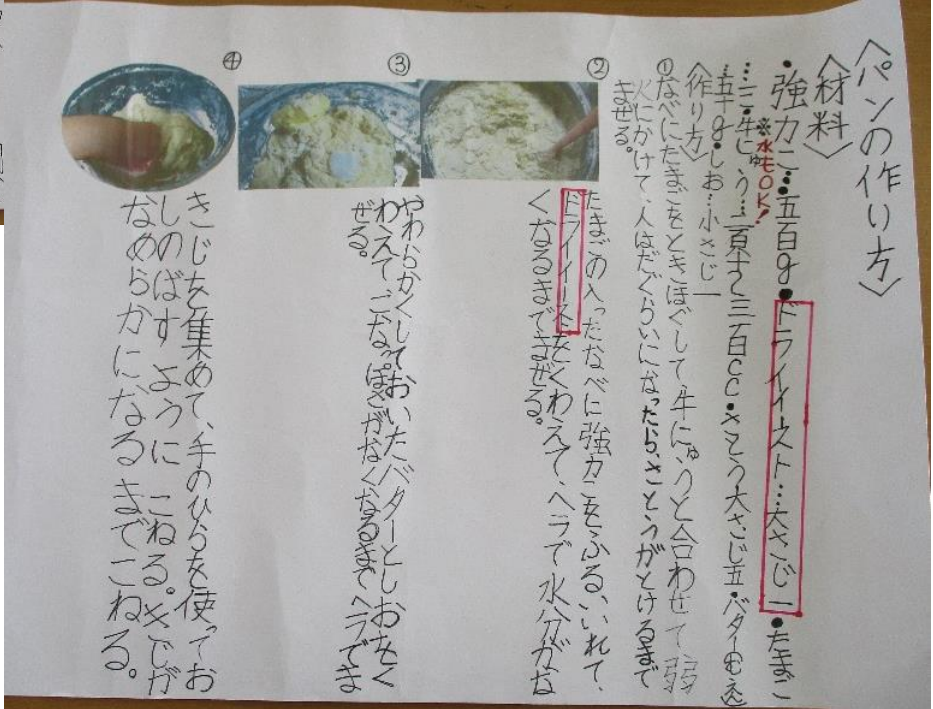 〈パンの作り方〉
〈材料〉
・強力こ…五百g・ドライイースト…大さじ一・たまご
※水もOK!
…二・牛にゅう…二百五十〜三百cc・さとう大さじ五・バターむえん
…五十g・しお…小さじ一
〈作り方〉
①なべにたまごをときほぐして牛にゅうと合わせて弱
火にかけて、人はだぐらいになったら、さとうがとけるまで
まぜる。
②
たまごの入ったなべに強力こをふるいいれて、
ドライイーストをくわえて、ヘラで水分がな
くなるまでまぜる。
③
やわらかくしておいたバターとしおをく
わえて、こなっぽさがなくなるまでヘラでま
ぜる。
④
きじを集めて、手のひらを使ってお
しのばすようにこねる。きじが
なめらかになるまでこねる。